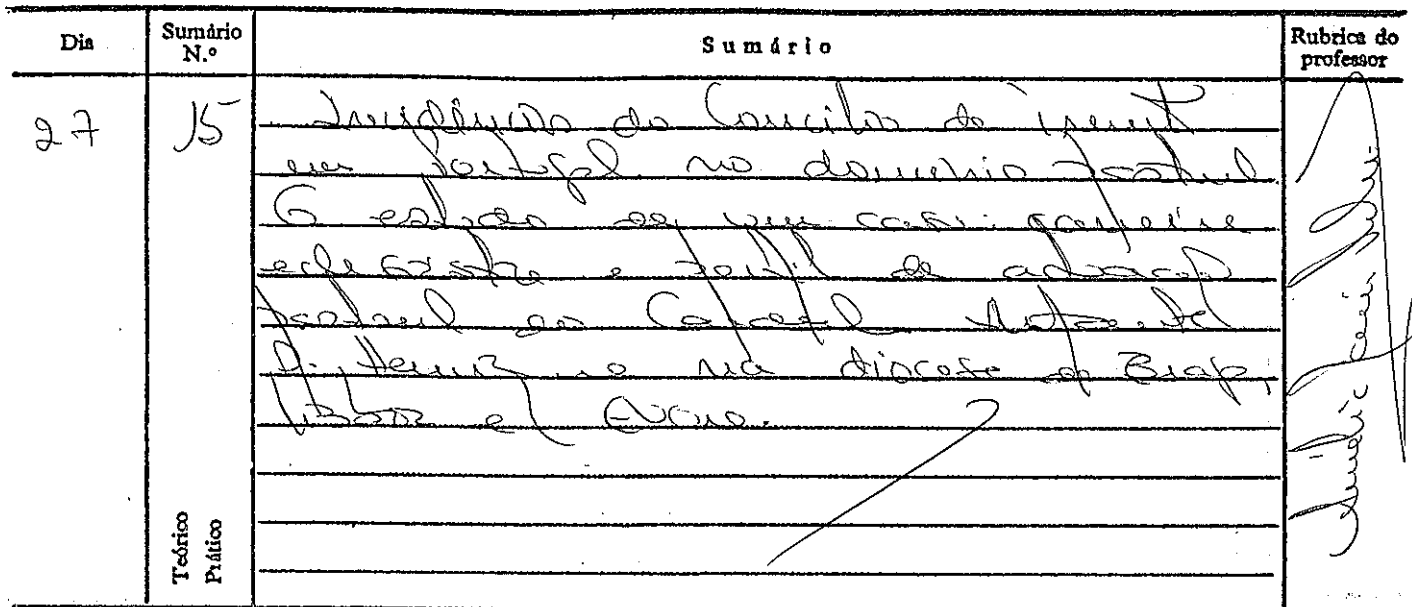 Dia Sumário N.º Sumário Rubrica do professor
27 15 Influências do Concílio de Trento
em Portugal no domínio pastoral.
O estudo de um caso: carreira
eclesiástica e perfil de actuação
pastoral do Cardeal Infante
D. Henrique na diocese de Braga,
Lisboa e Évora.
Teórico
Prático